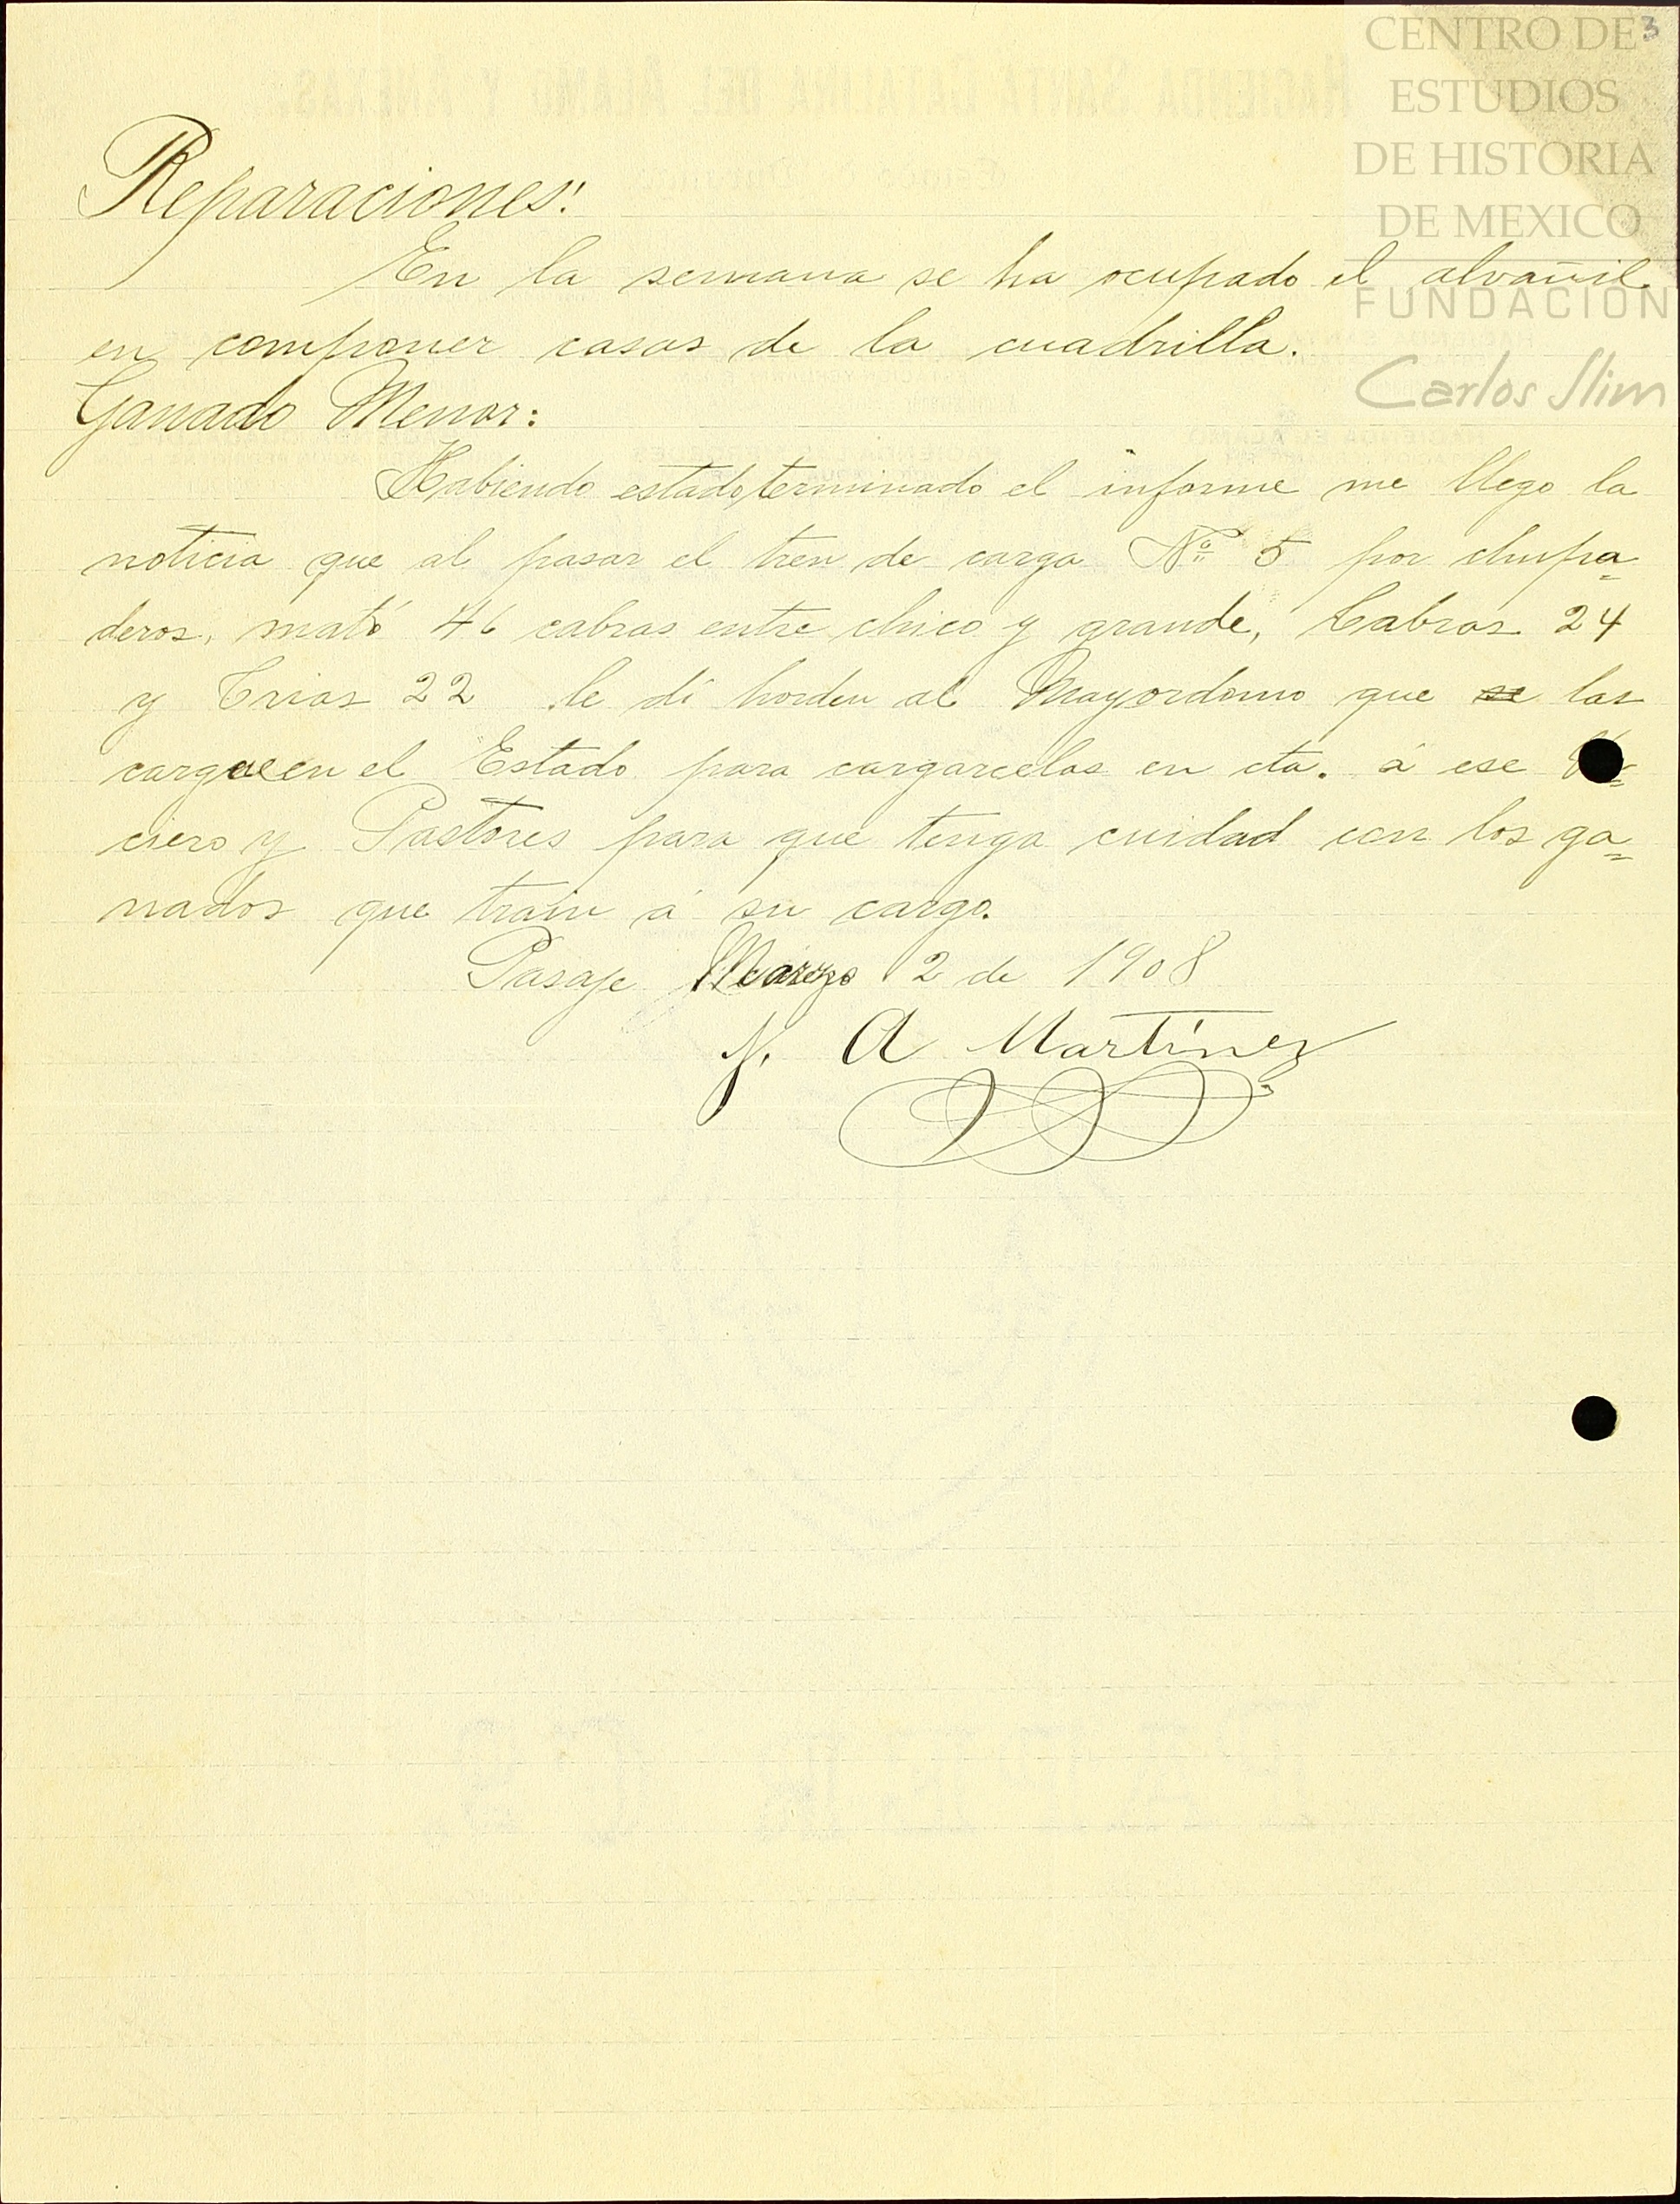 3
CENTRO DE
ESTUDIOS
DE HISTORIA
DE MEXICO
FUNDACIÓN
Carlos Slim
Reparaciones:
En la semana se ha ocupado el alvañil
en componer casas de la cuadrilla.
Ganado Menor:
Habiendo estado terminado el informe me llego la
noticia que al pasar el tren de carga Nº 5 por chupa=
deros, mató 46 cabras entre chico y grande, Cabras 24
y Crias 22 le di horden al Mayordomo que se las
cargue en el Estado para cargarcelas en cta. á ese
ciero y Pastores para que tenga cuidad con los ga=
nados que train á su cargo.
Pasaje Marzo 2 de 1908
N. A Martínez